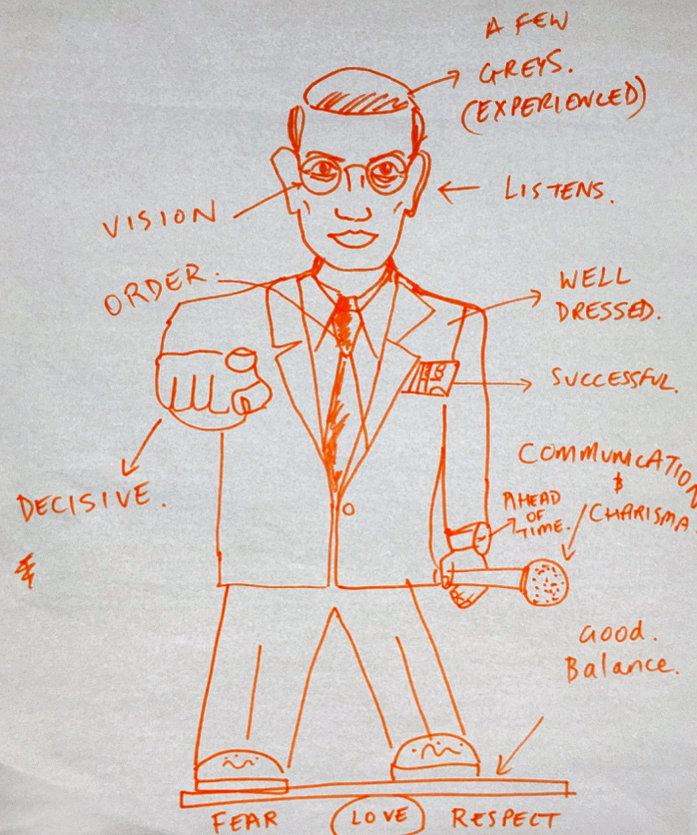 A FEW
GREYS.
(EXPERIENCED)
VISION
LISTENS.
ORDER.
WELL
DRESSED.
SUCCESSFUL.
COMMUNICATION
&
CHARISMA.
AHEAD
OF
TIME.
DECISIVE.
Good.
Balance.
FEAR
LOVE
RESPECT